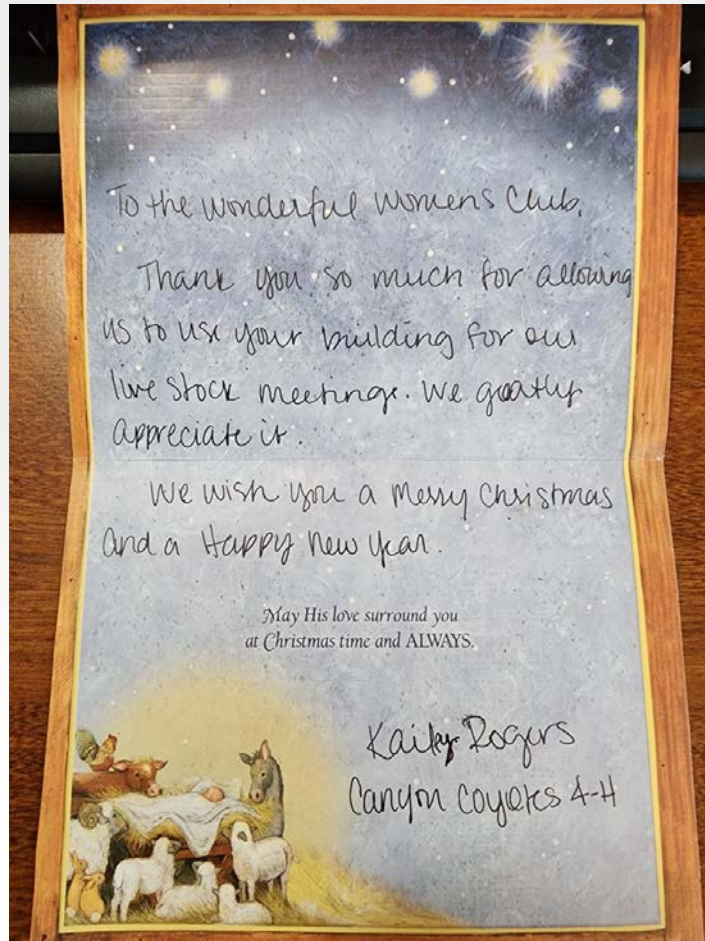 To the wonderful womens Club,
Thank you so much for allowing
us to use your building for our
live stock meetings. We greatly
appreciate it.
We wish you a Merry Christmas
and a Happy New Year.
May His love surround you
at Christmas time and ALWAYS.
Rogers
Canyon Coyotes 4-H